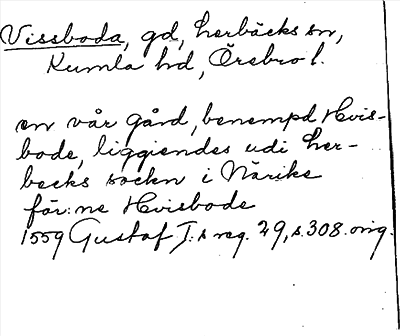 Vissboda, gd, Lerbäcks sn,
Kumla hd, Örebro l.
en vår gård, benempd Hvis-
bode, liggiendes udi Ler-
becks sockn i Närike
för:ne Hvisbode
1559 Gustaf I:s reg. 29, s. 308. orig.